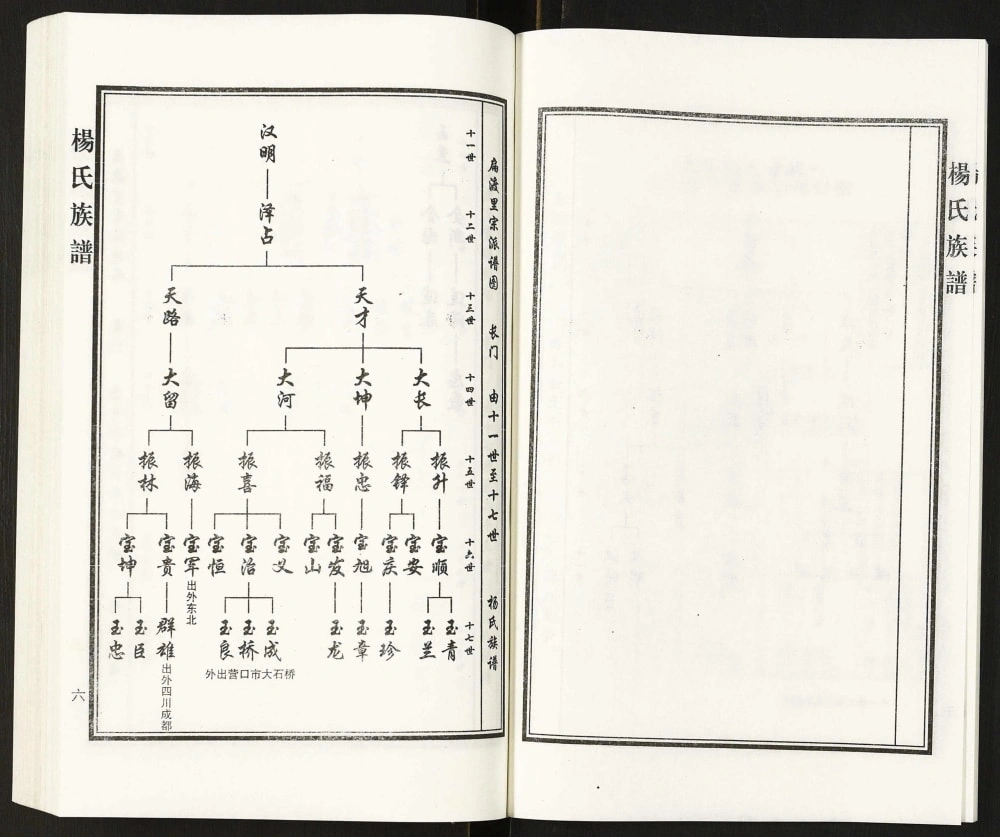 楊氏族譜
扁渡里宗派谱图 长门 由十一世至十七世 杨氏族谱
十一世
汉明
十二世
泽占
十三世
天才
天路
十四世
大长
大坤
大河
大留
十五世
振升
振铎
振忠
振福
振喜
振海
振林
十六世
宝顺
宝安
宝庆
宝旭
宝发
宝山
宝义
宝治
宝恒
宝军
出外东北
宝贵
宝坤
十七世
玉青
玉兰
玉珍
玉章
玉龙
玉成
玉桥
玉良
外出营口市大石桥
群雄
出外四川成都
玉臣
玉忠
六
楊氏族譜